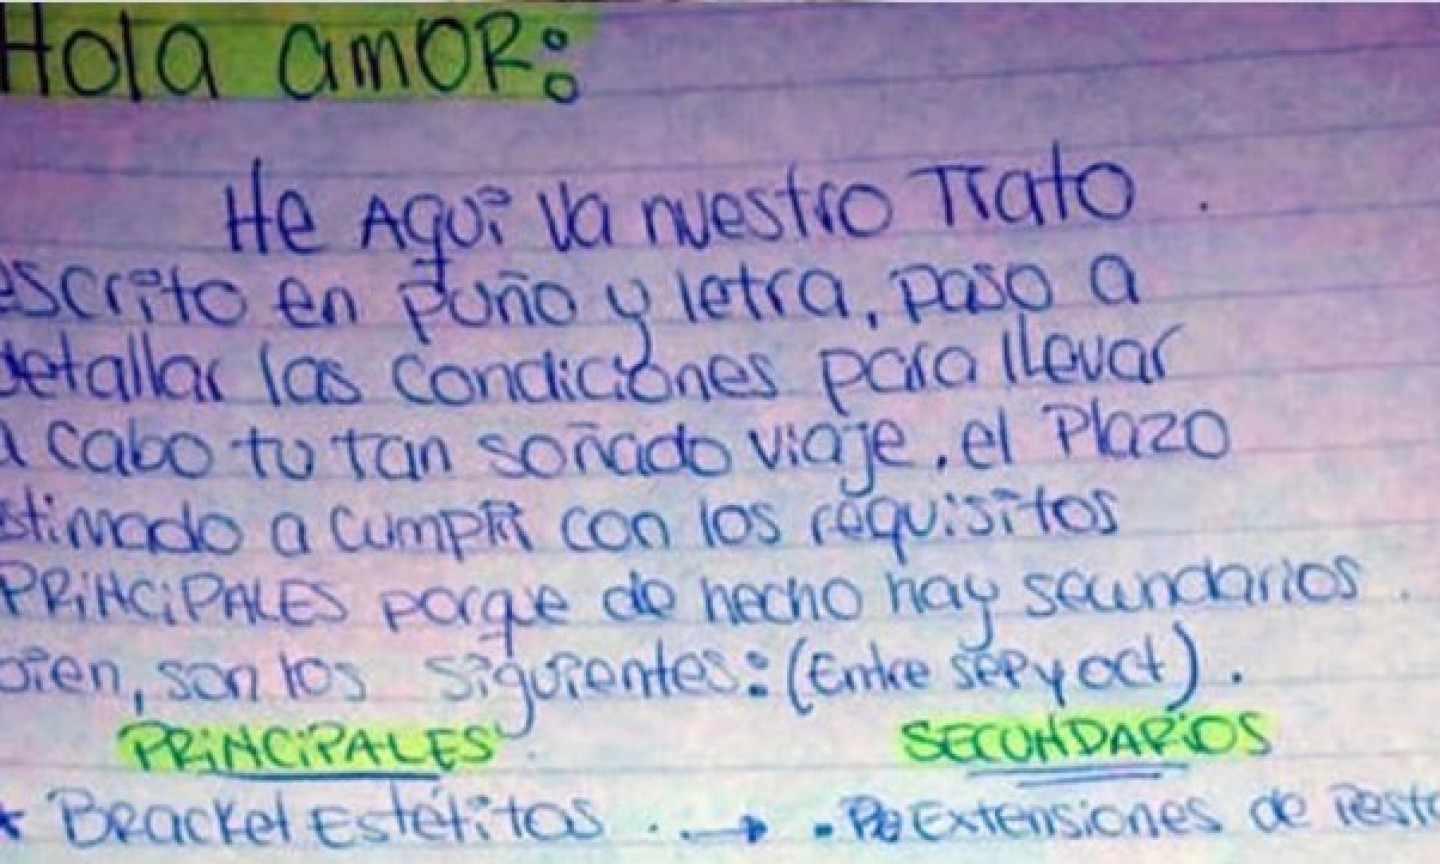 Hola amor:
He Aqui va nuestro Trato.
escrito en puño y letra, paso a
detallar las condiciones para llevar
a cabo tu tan soñado viaje, el Plazo
stimado a cumplir con los requisitos
PRINCIPALES porque de hecho hay secundarios.
bien, son los siguientes: (Entre sep y oct).
PRINCIPALES SECUNDARIOS
* Bracket Estétitos. → • Extensiones de Pesta